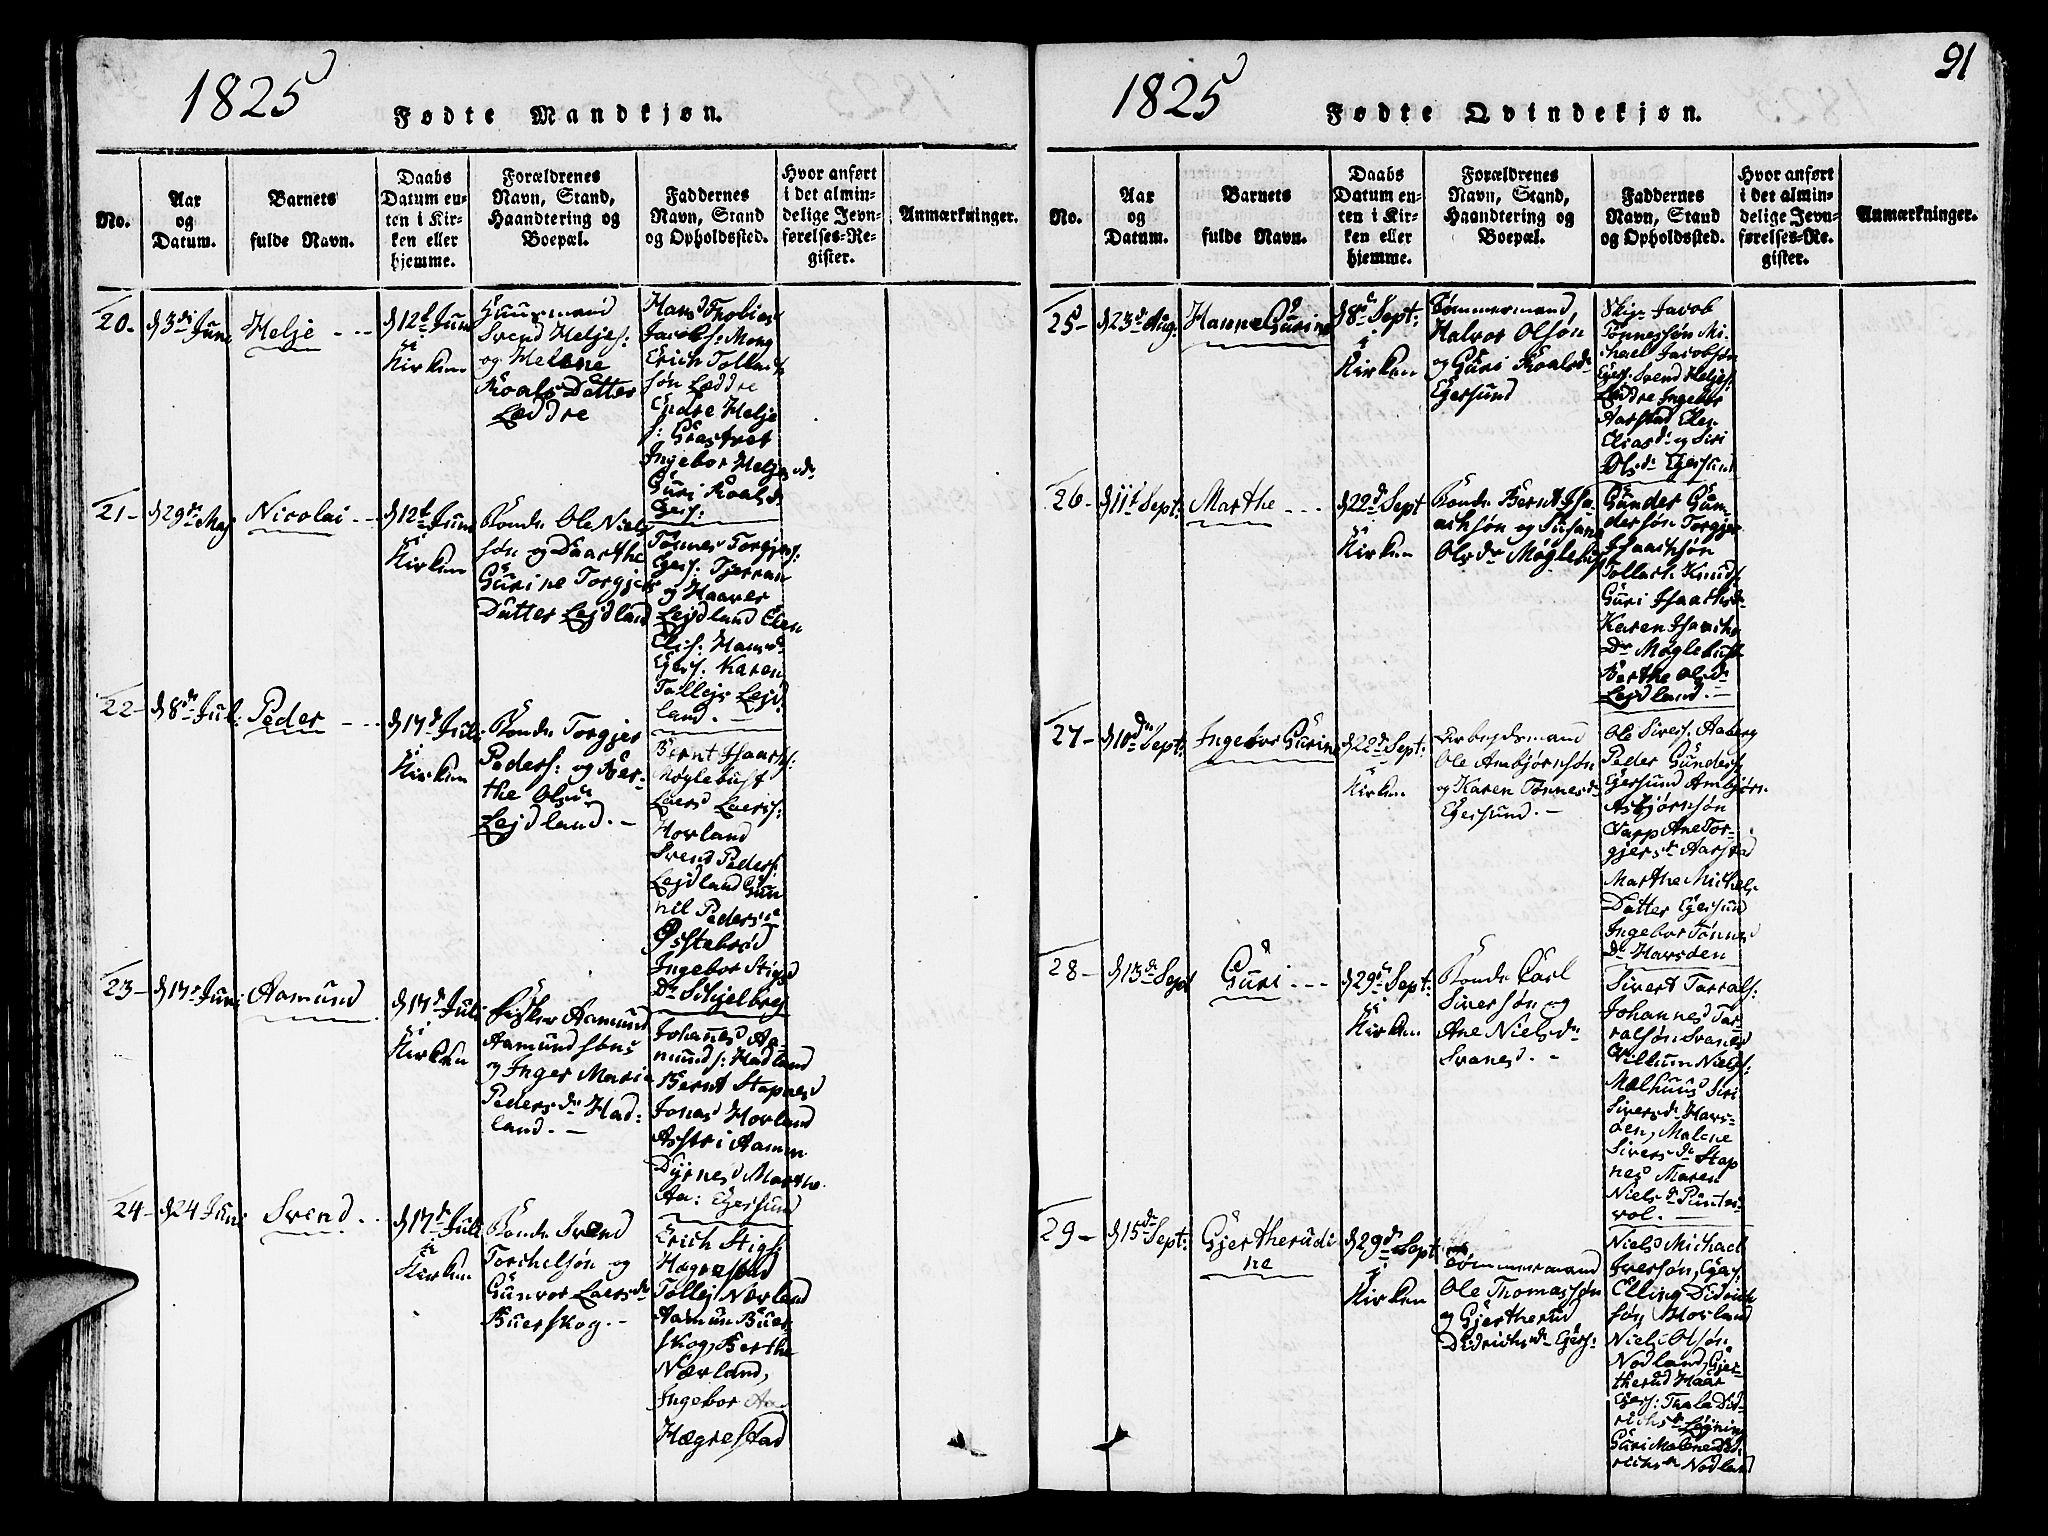 91
1825
Fødte Mandkjøn.
No.
Aar
og
Datum.
Barnets
fulde Navn.
Daabs
Datum en-
ten i Kir-
ken eller
hjemme.
Forældrenes
Navn, Stand,
Haandtering og
Boepæl.
Faddernes
Navn, Stand
og Opholdssted.
Hvor anført
i det almin-
delige Jevn-
førelses-Re-
gister.
Anmærkninger.
20-
d 3di Juni
Helje
d 12t Juni
i
Kirken
Huusmand
Svend Heljes:
og Helene
Roals Datter
Leddre
Hans Thobias
Jacobs: Mong
Erich Tollack
søn Leddre
Endre Helje
s: Grastvet
Ingebor Heljesdr
Guri Roalsdr
Egers:
21-
d 29de Maj
Nicolai
d 12t Juni
i
Kirken
Bonde Ole Niels
søn og Daarthe
Gurine Torgjers
Datter Lejdland
Tønnes Torgjers:
Egers: Tjerran
og Haaver
Lejdland Elen
Elis: Hansdr
Egers. Karen
Tollejs Lejd
land. -
22-
d 8de Juli:
Peder
d 17d Juli
i
Kirken
Bonde Torgjer
Peders: og Ber-
the Olsdr
Lejdland. -
Bernt Isaachs:
Møglebust
Laers Laeris:
Hovland
Svend Peders:
Lejdland Gun
nil Pedersdr
Østebrød
Ingebor Stigs
Dr Skjelbrej
23-
d 17de Juni
Aamund
d 17d Juli
i
Kirken
Fisker Aamund
Aamundsøns
og Inger Marie
Pedersdr Had:
land. -
Johanes Aa-
munds: Hadland
Bernt Stapnes
Jonas Hovland
Asstri Aamun
Dyrnes Marthe
Aa: Egersund
24-
d 24 Juni
Svend
d 17d Juli
i
Kirken
Bonde Svend
Torchelsøn og
Gunvor Laersdr
Buerskog. -
Erich Stigs:
Hægrestad
Tollej Nærland
Aamun Buer-
skog, Berthe
Nærland,
Ingebor Aa
Hægrestad
1825
Fødte Qvindekjøn.
No.
Aar
og
Datum.
Barnets
fulde Navn.
Daabs
Datum en-
ten i Kir-
ken eller
hjemme.
Forældrenes
Navn, Stand,
Haandtering og
Boepæl.
Faddernes
Navn, Stand
og Opholdssted.
Hvor anført
i det almin-
delige Jevn-
førelses-Re-
gister.
Anmærkninger.
25-
d 23d Aug.
Hanne Gurine
d 8d Sept:
i
Kirken
Tømmermand,
Halvor Olsøn
og Guri Roalsdr
Egersund
Skip. Jacob
Tønnessøn Mi-
chael Jacobsøn
Egers. Svend Heljes:
Leddre Ingebor
Aarstad Elen
Eliasdr og Siri
Olsdr Egersund
26-
d 11t Sept:
Marthe
d 22d Sept
i
Kirken
Bonde Bernt Isa-
achsøn og Susane
Olsdr Møglebust
Gunder Gun-
dersøn Torgjer
Isaachsøn
Tollach Knuds
Guri Isaachsdr
Karen Isaachs
Dr Møglebust
Berthe Olsdr
Lejdland. -
27-
d 10de Sept:
Ingebor Gurine
d 22d Sept:
i
Kirken
Arbejdsmand
Ole Ambjørnsøn
og Karen Tønnesdr
Egersund. -
Ole Sivers. Aaberg
Peder Gunders:
Egersund Ambjørn
Asbjørnsøn
Varp Ane Tor-
gjersdr Aarstad
Marthe Michels
Datter Egersund
Ingebor Tønnes
Dr Havsøen
28-
d 13de Sept
Guri
d 29d Sept:
i
Kirken
Bonde Carl
Siversøn og
Ane Nielsdr
Svanes. -
Sivert Tarrals:
Johannes Tar-
ralsøn Svanes
Villum Niels:
Mælhuus Siri
Siversdr Havs-
øen, Malene
Siversdr Stap
nes Maren
Nielsdr Puntar-
vol. -
29-
d 15de Sept:
Gjertherudi
ne
d 29de Sept
i
Kirken
Tømmermand
Ole Thomassøn
og Gjertherud
Didrichsdr Egers:
Niels Michael
Iversøn, Egers:
Elling Didrich
søn Hovland
Niels Olsøn
Nodland, Gjer-
therud Haar
Egers: Thala Did-
richsdr Løgning
Guri Malene Did-
richsdr Nodland